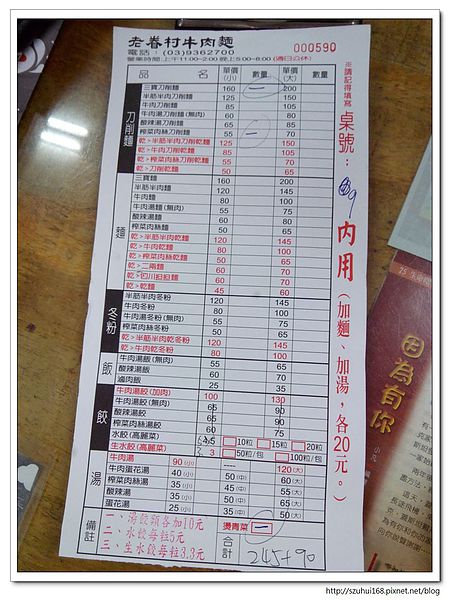 老眷村牛肉麵
000590
電話:(03)9362700
營業時間:上午11:00-2:00 晚上5:00-8:00 (週日公休)
品名 單價(小) 數量 單價(大) 數量
刀削麵
三寶刀削麵 160 一 200
半筋半肉刀削麵 125 150
牛肉刀削麵 85 105
牛肉湯刀削麵(無肉) 60 80
酸辣湯刀削麵 65 85
榨菜肉絲刀削麵 55 一 70
乾>半筋半肉刀削乾麵 125 150
乾>牛肉刀削乾麵 85 105
乾>榨菜肉絲刀削乾麵 55 70
乾>刀削乾麵 50 65
麵
三寶麵 160 200
半筋半肉麵 120 145
牛肉麵 80 100
牛肉湯麵(無肉) 55 75
酸辣湯麵 60 80
榨菜肉絲麵 50 65
乾>半筋半肉乾麵 120 145
乾>牛肉乾麵 80 100
乾>榨菜肉絲乾麵 50 65
乾>二兩麵 60 70
乾>四川担担麵 60 70
乾>乾麵 45 60
冬粉
半筋半肉冬粉 120 145
牛肉冬粉 80 100
牛肉湯冬粉(無肉) 55 75
榨菜肉絲冬粉 50 65
乾>半筋半肉乾冬粉 120 145
乾>牛肉乾冬粉 80 100
飯
牛肉湯飯(無肉) 55 70
酸辣湯飯 60
滷肉飯 25 35
餃
牛肉湯餃(加肉) 100 130
牛肉湯餃(無肉) 90
酸辣湯餃 90
榨菜肉絲湯餃 80
水餃(高麗菜) 10粒 15粒 20粒
生水餃(高麗菜) 3 50粒/包 100粒/包
湯
牛肉湯 90(小) ---- 120(大)
牛肉蛋花湯 40(小) 50(中) 60(大)
榨菜肉絲湯 35(小) 45(中) 55(大)
酸辣湯 35(小) 45(中) 55(大)
蛋花湯 25(小) 35(中) 50(大)
備註
一、湯餃類各加10元
二、水餃每粒5元
三、生水餃每粒3.3元
燙青菜 一
合計 245+90
※請記得填寫 桌號: 9
內用(加麵、加湯,各20元。)
因為有你
http://szuhui168.pixnet.net/blog